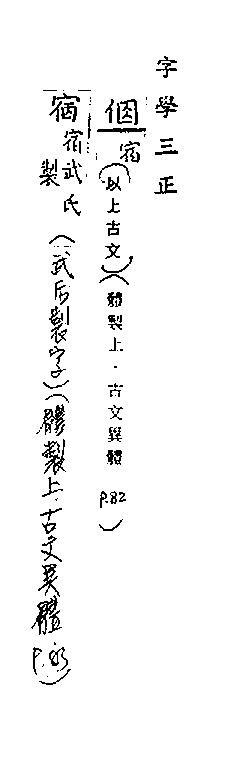 字學三正
個
宿
(以上古文)(體製上.古文異體 P.82)
宿
宿武氏製
(武后製字)(體製上.古文異體 P.83)